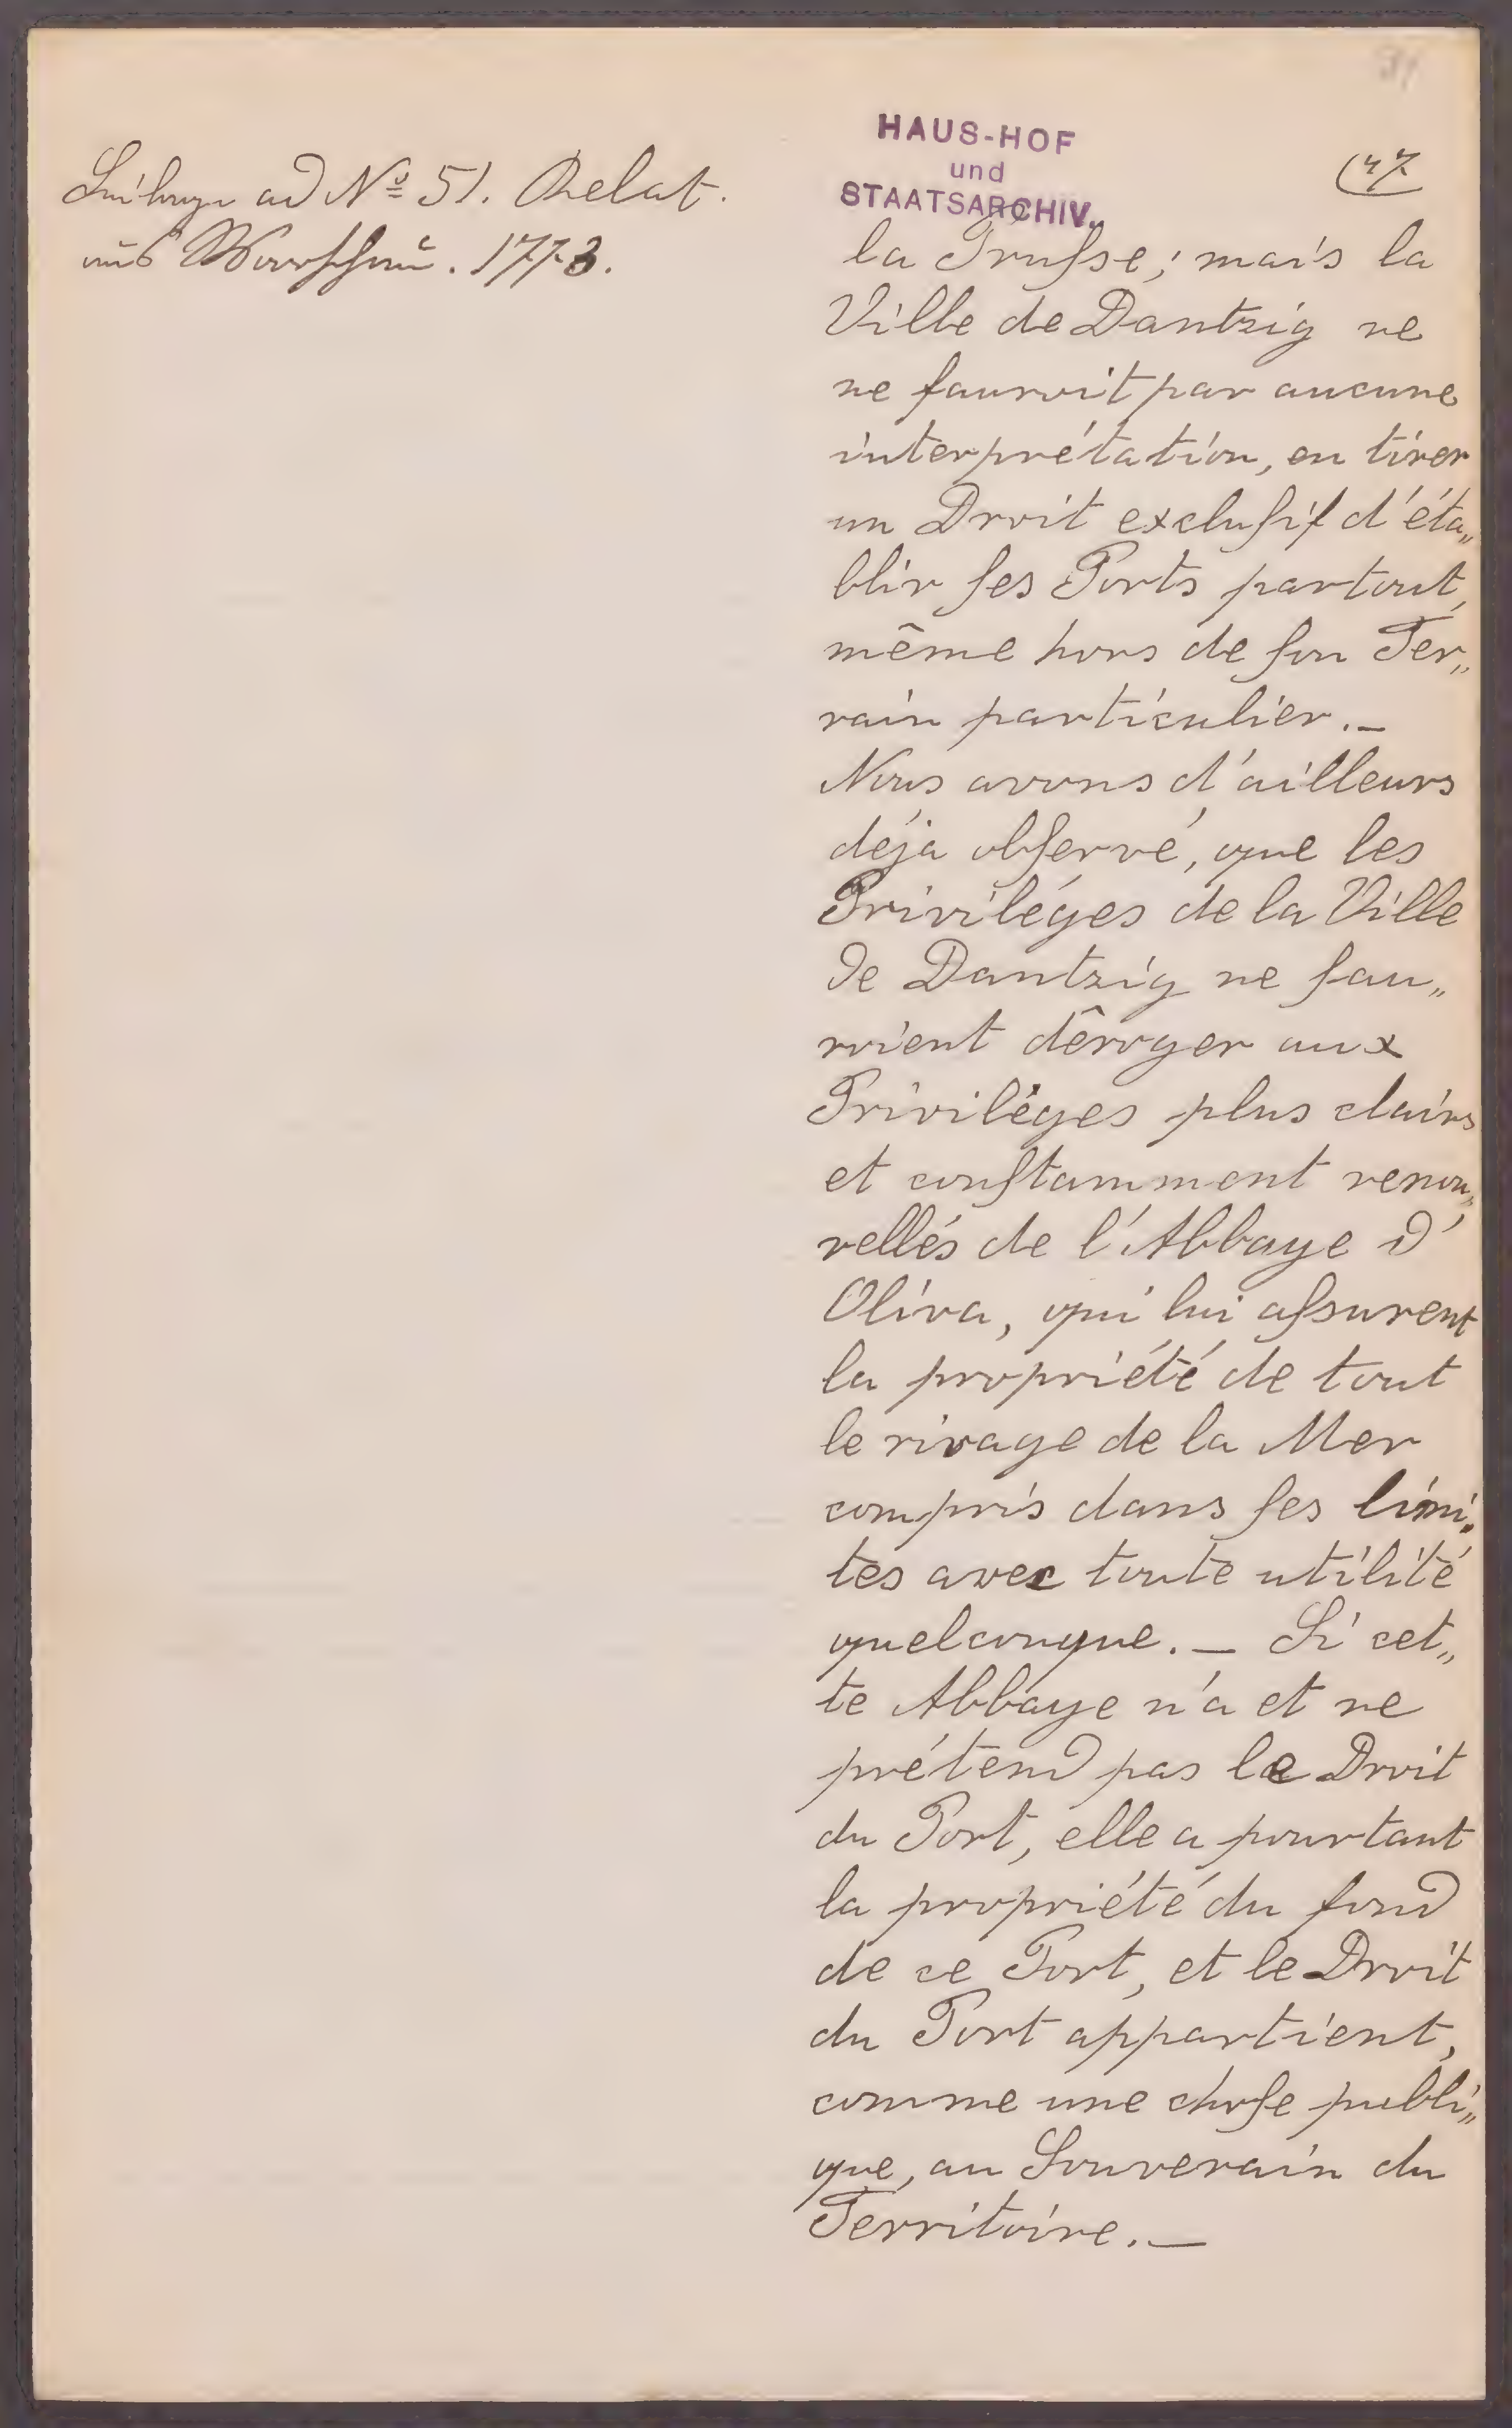 Beilage ad Nº 51. Relat.
aus Warschau. 1773.
HAUS-HOF
und
STAATSARCHIV.
la Prusse; mais la
Ville de Dantzig ne
ne sauroit par aucune
interprétation, en tirer
un Droit exclusif d'éta„
blir ses Ports partout,
même hors de son Ter„
rain particulier. _
Nous avons d'ailleurs
déja observé, que les
Priviléges de la Ville
de Dantzig ne sau„
roient dêroger aux
Priviléges plus clairs
et constamment renou„
vellés de l'Abbaye d'
Oliva, qui lui assurent
la propriété de tout
le rivage de la Mer
compris dans ses limi„
tes avec toute utilité
quelconque. _ Si cet„
te Abbaye n'a et ne
prétend pas le Droit
du Port, elle a pourtant
la propriété du fond
de ce Port, et le Droit
du Port appartient,
comme une chose publi„
que, au Souverain du
Territoire. _